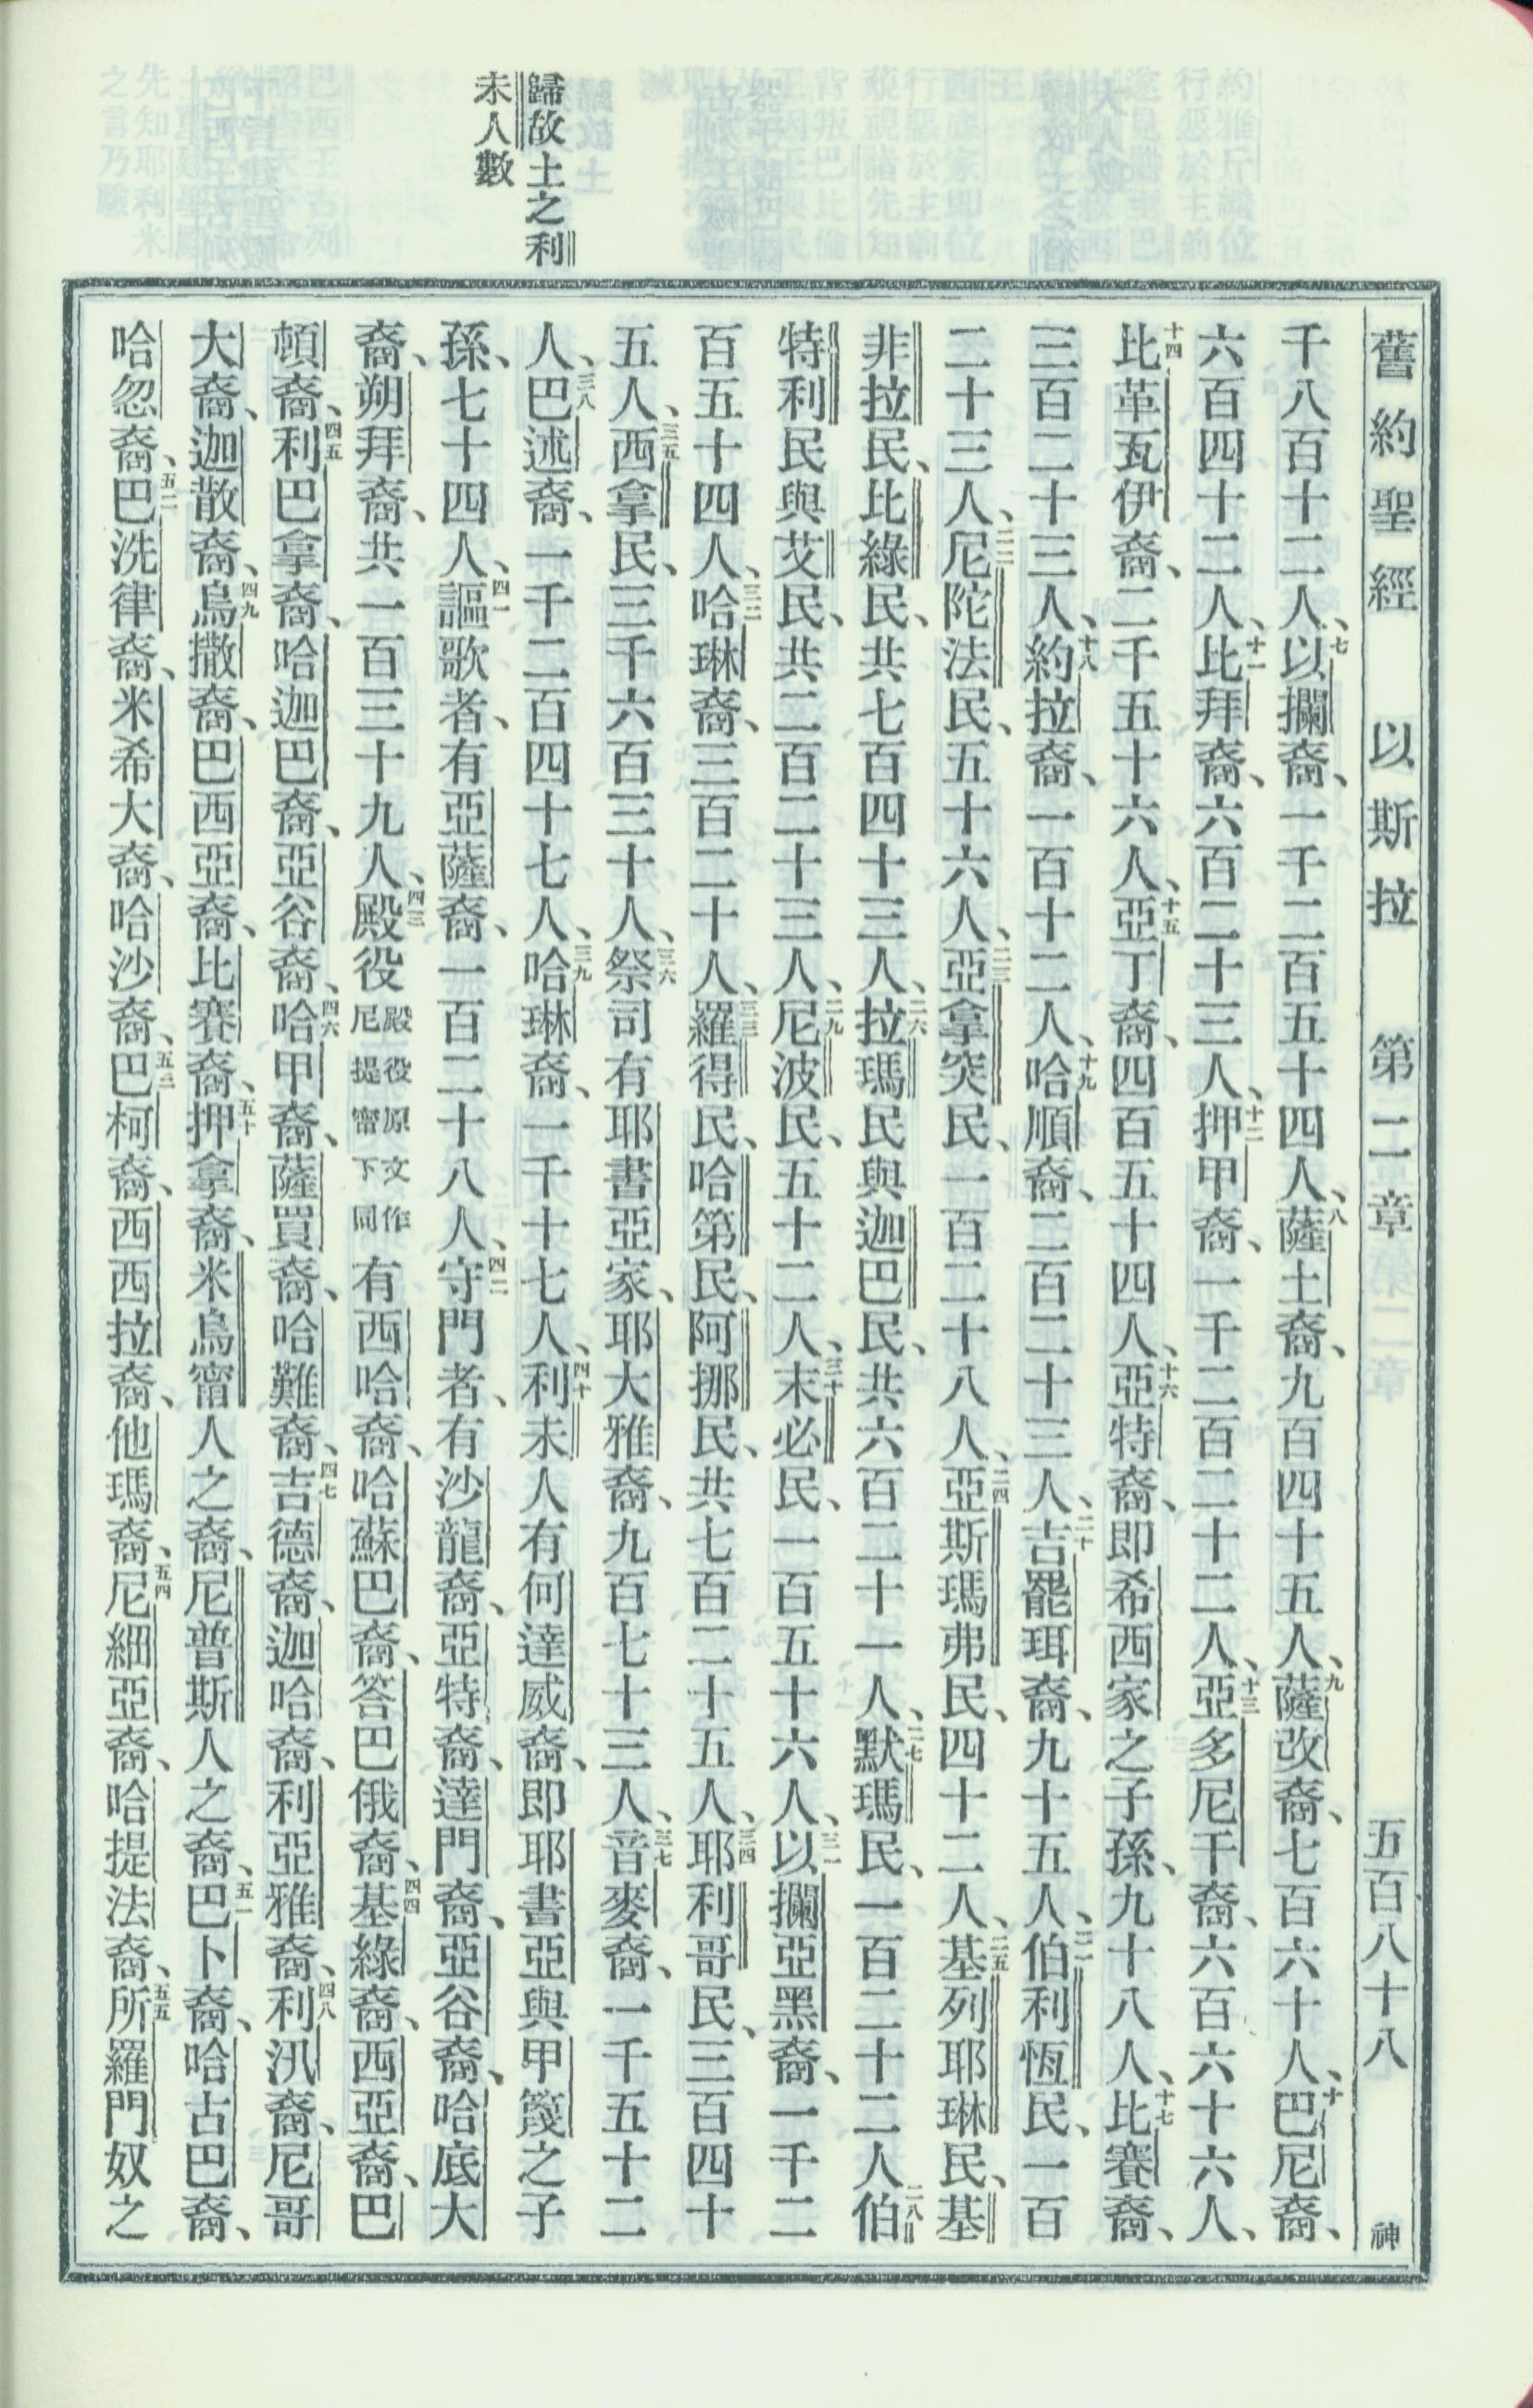 舊約聖經　以斯拉　第二章　五百八十八　神
歸故土之利
未人數
千八百十二人、七以攔裔、一千二百五十四人、八薩土裔、九百四十五人、九薩改裔、七百六十人、十巴尼裔、
六百四十二人、十一比拜裔、六百二十三人、十二押甲裔、一千二百二十二人、十三亞多尼干裔、六百六十六人、
十四比革瓦伊裔、二千五十六人、十五亞丁裔、四百五十四人、十六亞特裔、即希西家之子孫、九十八人、十七比賽裔、
三百二十三人、十八約拉裔、一百十二人、十九哈順裔、二百二十三人、二十吉罷珥裔、九十五人、二一伯利恆民、一百
二十三人、二二尼陀法民、五十六人、二三亞拿突民、一百二十八人、二四亞斯瑪弗民、四十二人、二五基列耶琳民、基
非拉民、比綠民、共七百四十三人、二六拉瑪民與迦巴民、共六百二十一人、二七默瑪民、一百二十二人二八伯
特利民與艾民、共二百二十三人、二九尼波民、五十二人、三十末必民、一百五十六人、三一以攔亞黑裔、一千二
百五十四人、三二哈琳裔、三百二十人、三三羅得民、哈第民、阿挪民、共七百二十五人、三四耶利哥民、三百四十
五人、三五西拿民、三千六百三十人、三六祭司有耶書亞家、耶大雅裔、九百七十三人、三七音麥裔、一千五十二
人、三八巴述裔、一千二百四十七人、三九哈琳裔、一千十七人、四十利未人有何達威裔、即耶書亞與甲篾之子
孫、七十四人、四一謳歌者、有亞薩裔、一百二十八人、四二守門者、有沙龍裔、亞特裔、達門裔、亞谷裔、哈底大
裔、朔拜裔、共一百三十九人、四三殿役殿役原文作尼提甯下同有西哈裔、哈蘇巴裔、答巴俄裔、四四基綠裔、西亞裔、巴
頓裔、四五利巴拿裔、哈迦巴裔、亞谷裔、四六哈甲裔、薩買裔、哈難裔、四七吉德裔、迦哈裔、利亞雅裔、四八利汛裔、尼哥
大裔、迦散裔、四九烏撒裔、巴西亞裔、比賽裔、五十押拿裔、米烏甯人之裔、尼普斯人之裔、五一巴卜裔、哈古巴裔、
哈忽裔、五二巴洗律裔、米希大裔、哈沙裔、五三巴柯裔、西西拉裔、他瑪裔、五四尼細亞裔、哈提法裔、五五所羅門奴之